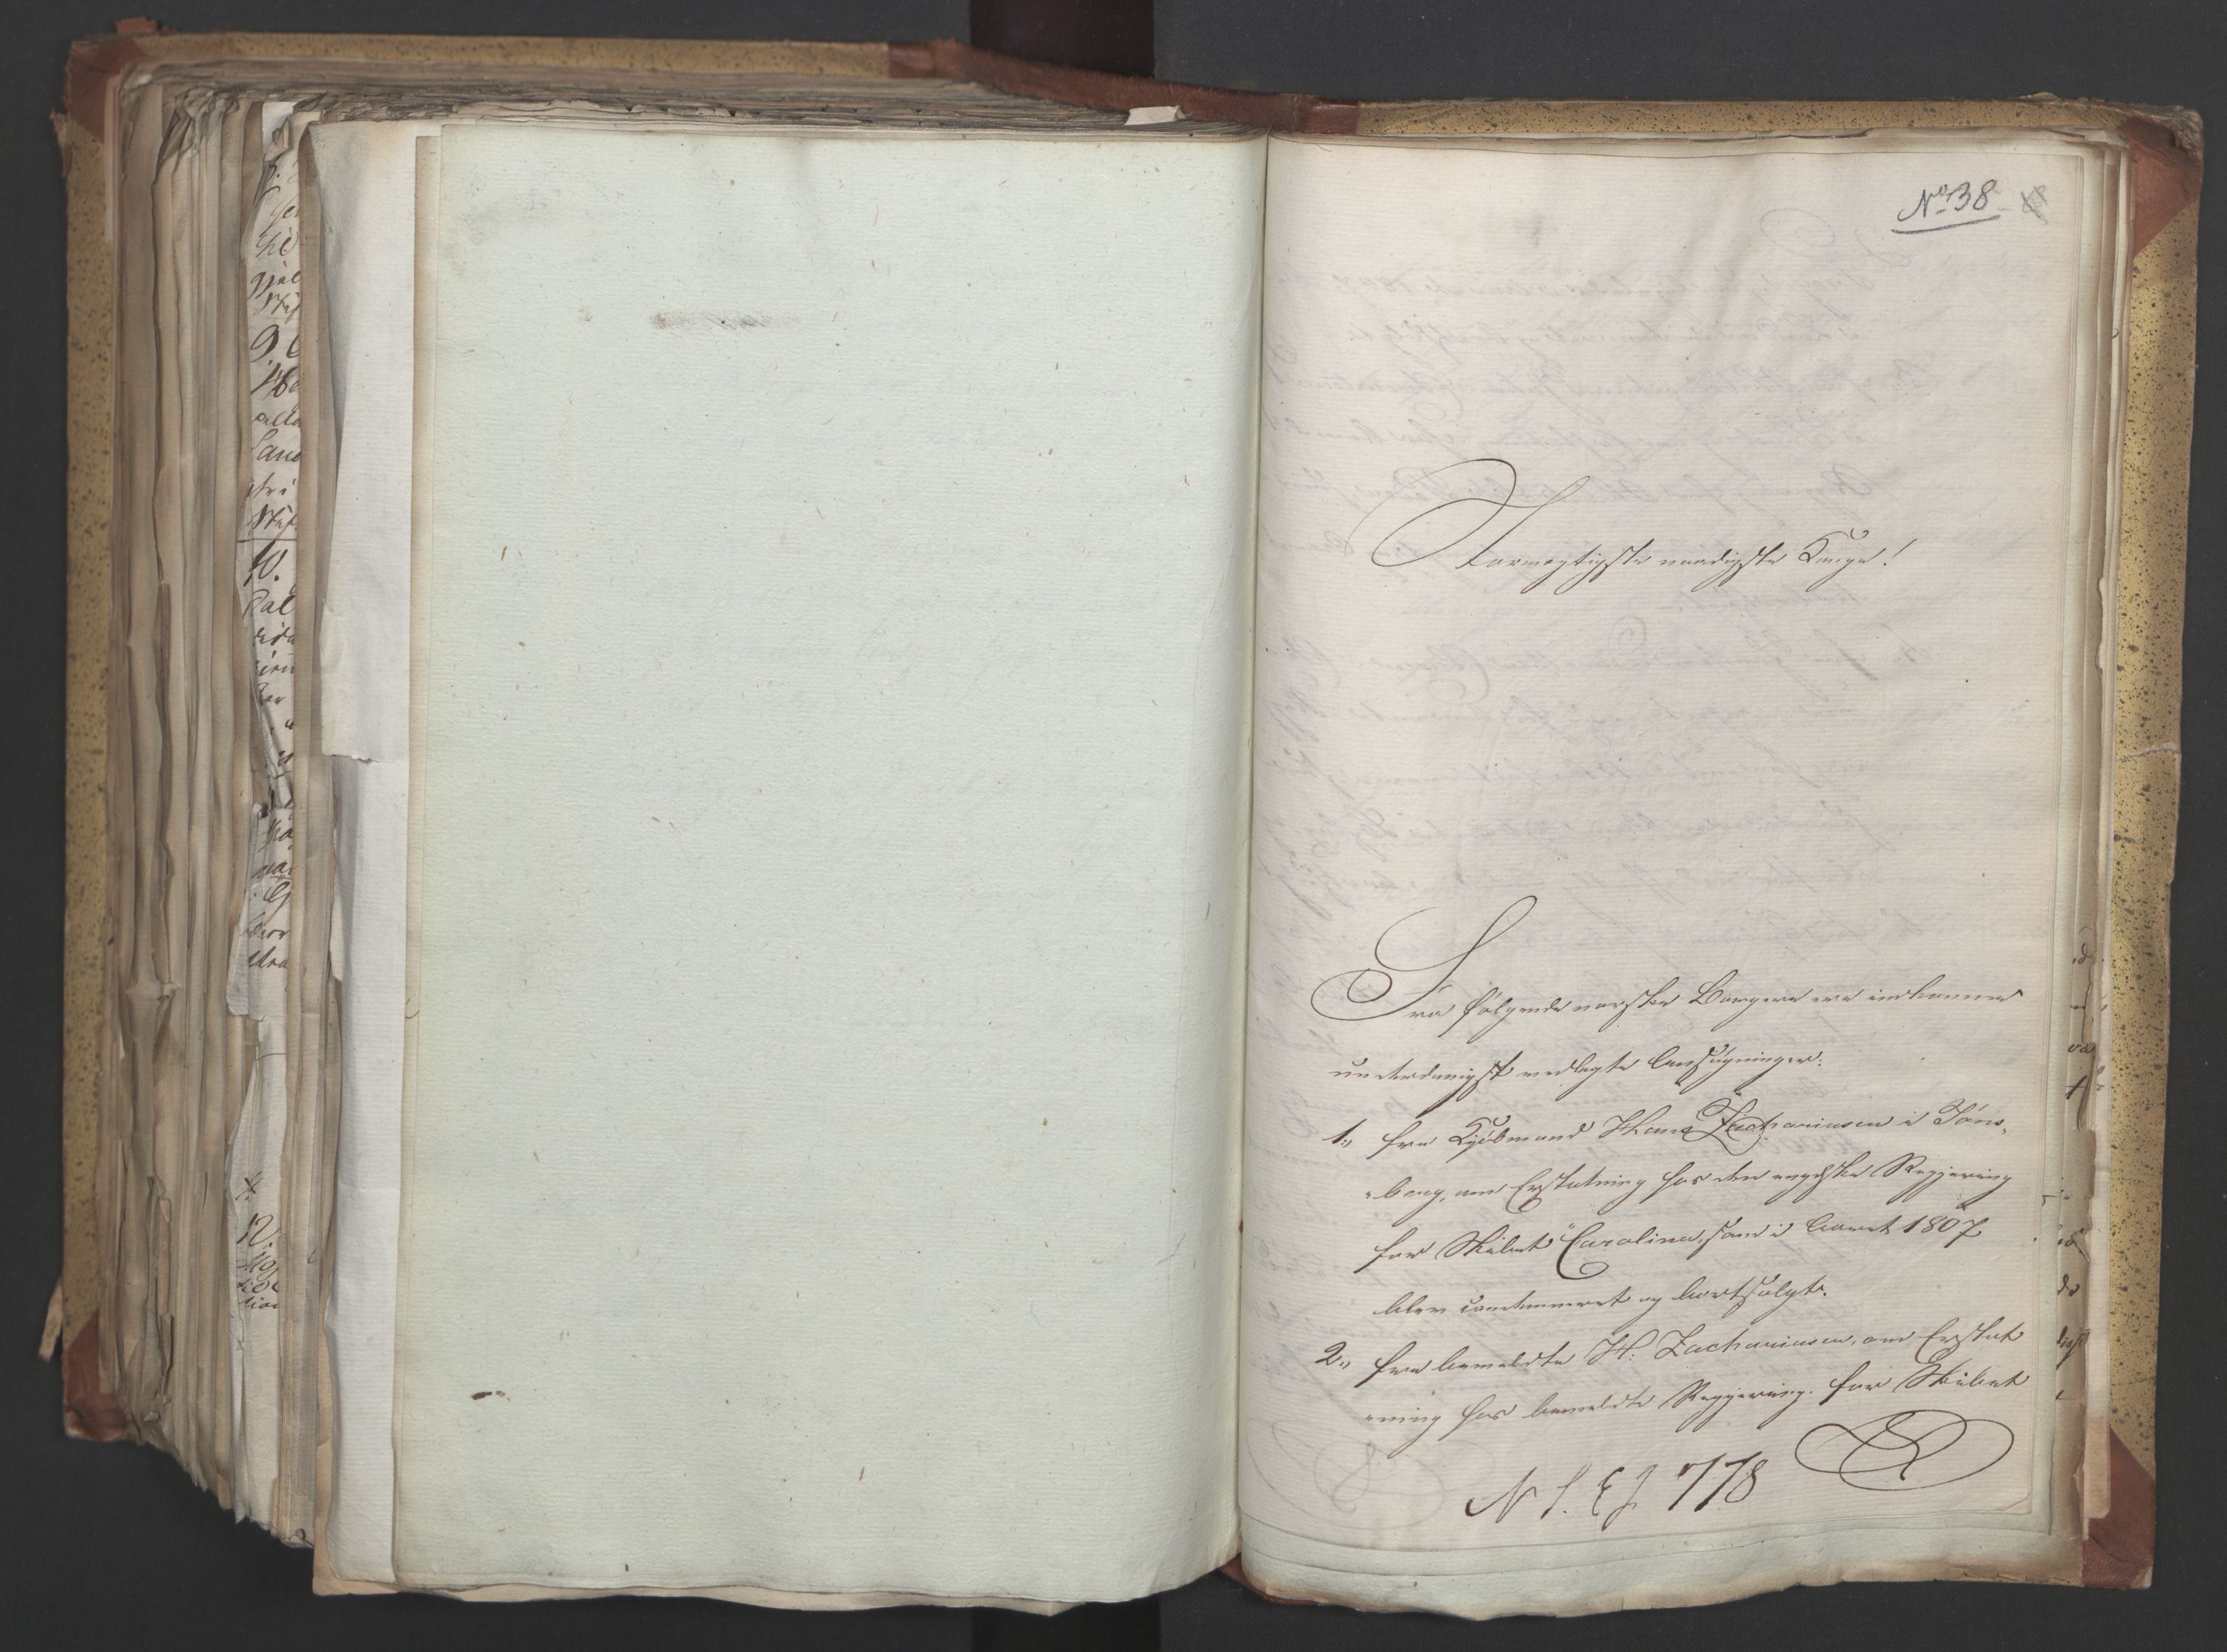 No 38
Stormægtigste naadigste Konge!
Fra følgende norske Borgere ere indkomne
underdanigst vedlagte Ansøgninger:
1., fra Kjøbmand Hans Zachariasen i Tøns-
-berg, om Erstatning hos den engelske Regjering
for Skibet "Carolina", som i Aaret 1807
blev condemneret og bortsolgt.
2., fra bemeldte H: Zachariasen, om Erstat
-ning hos bemeldte Regjering for Skibet
778